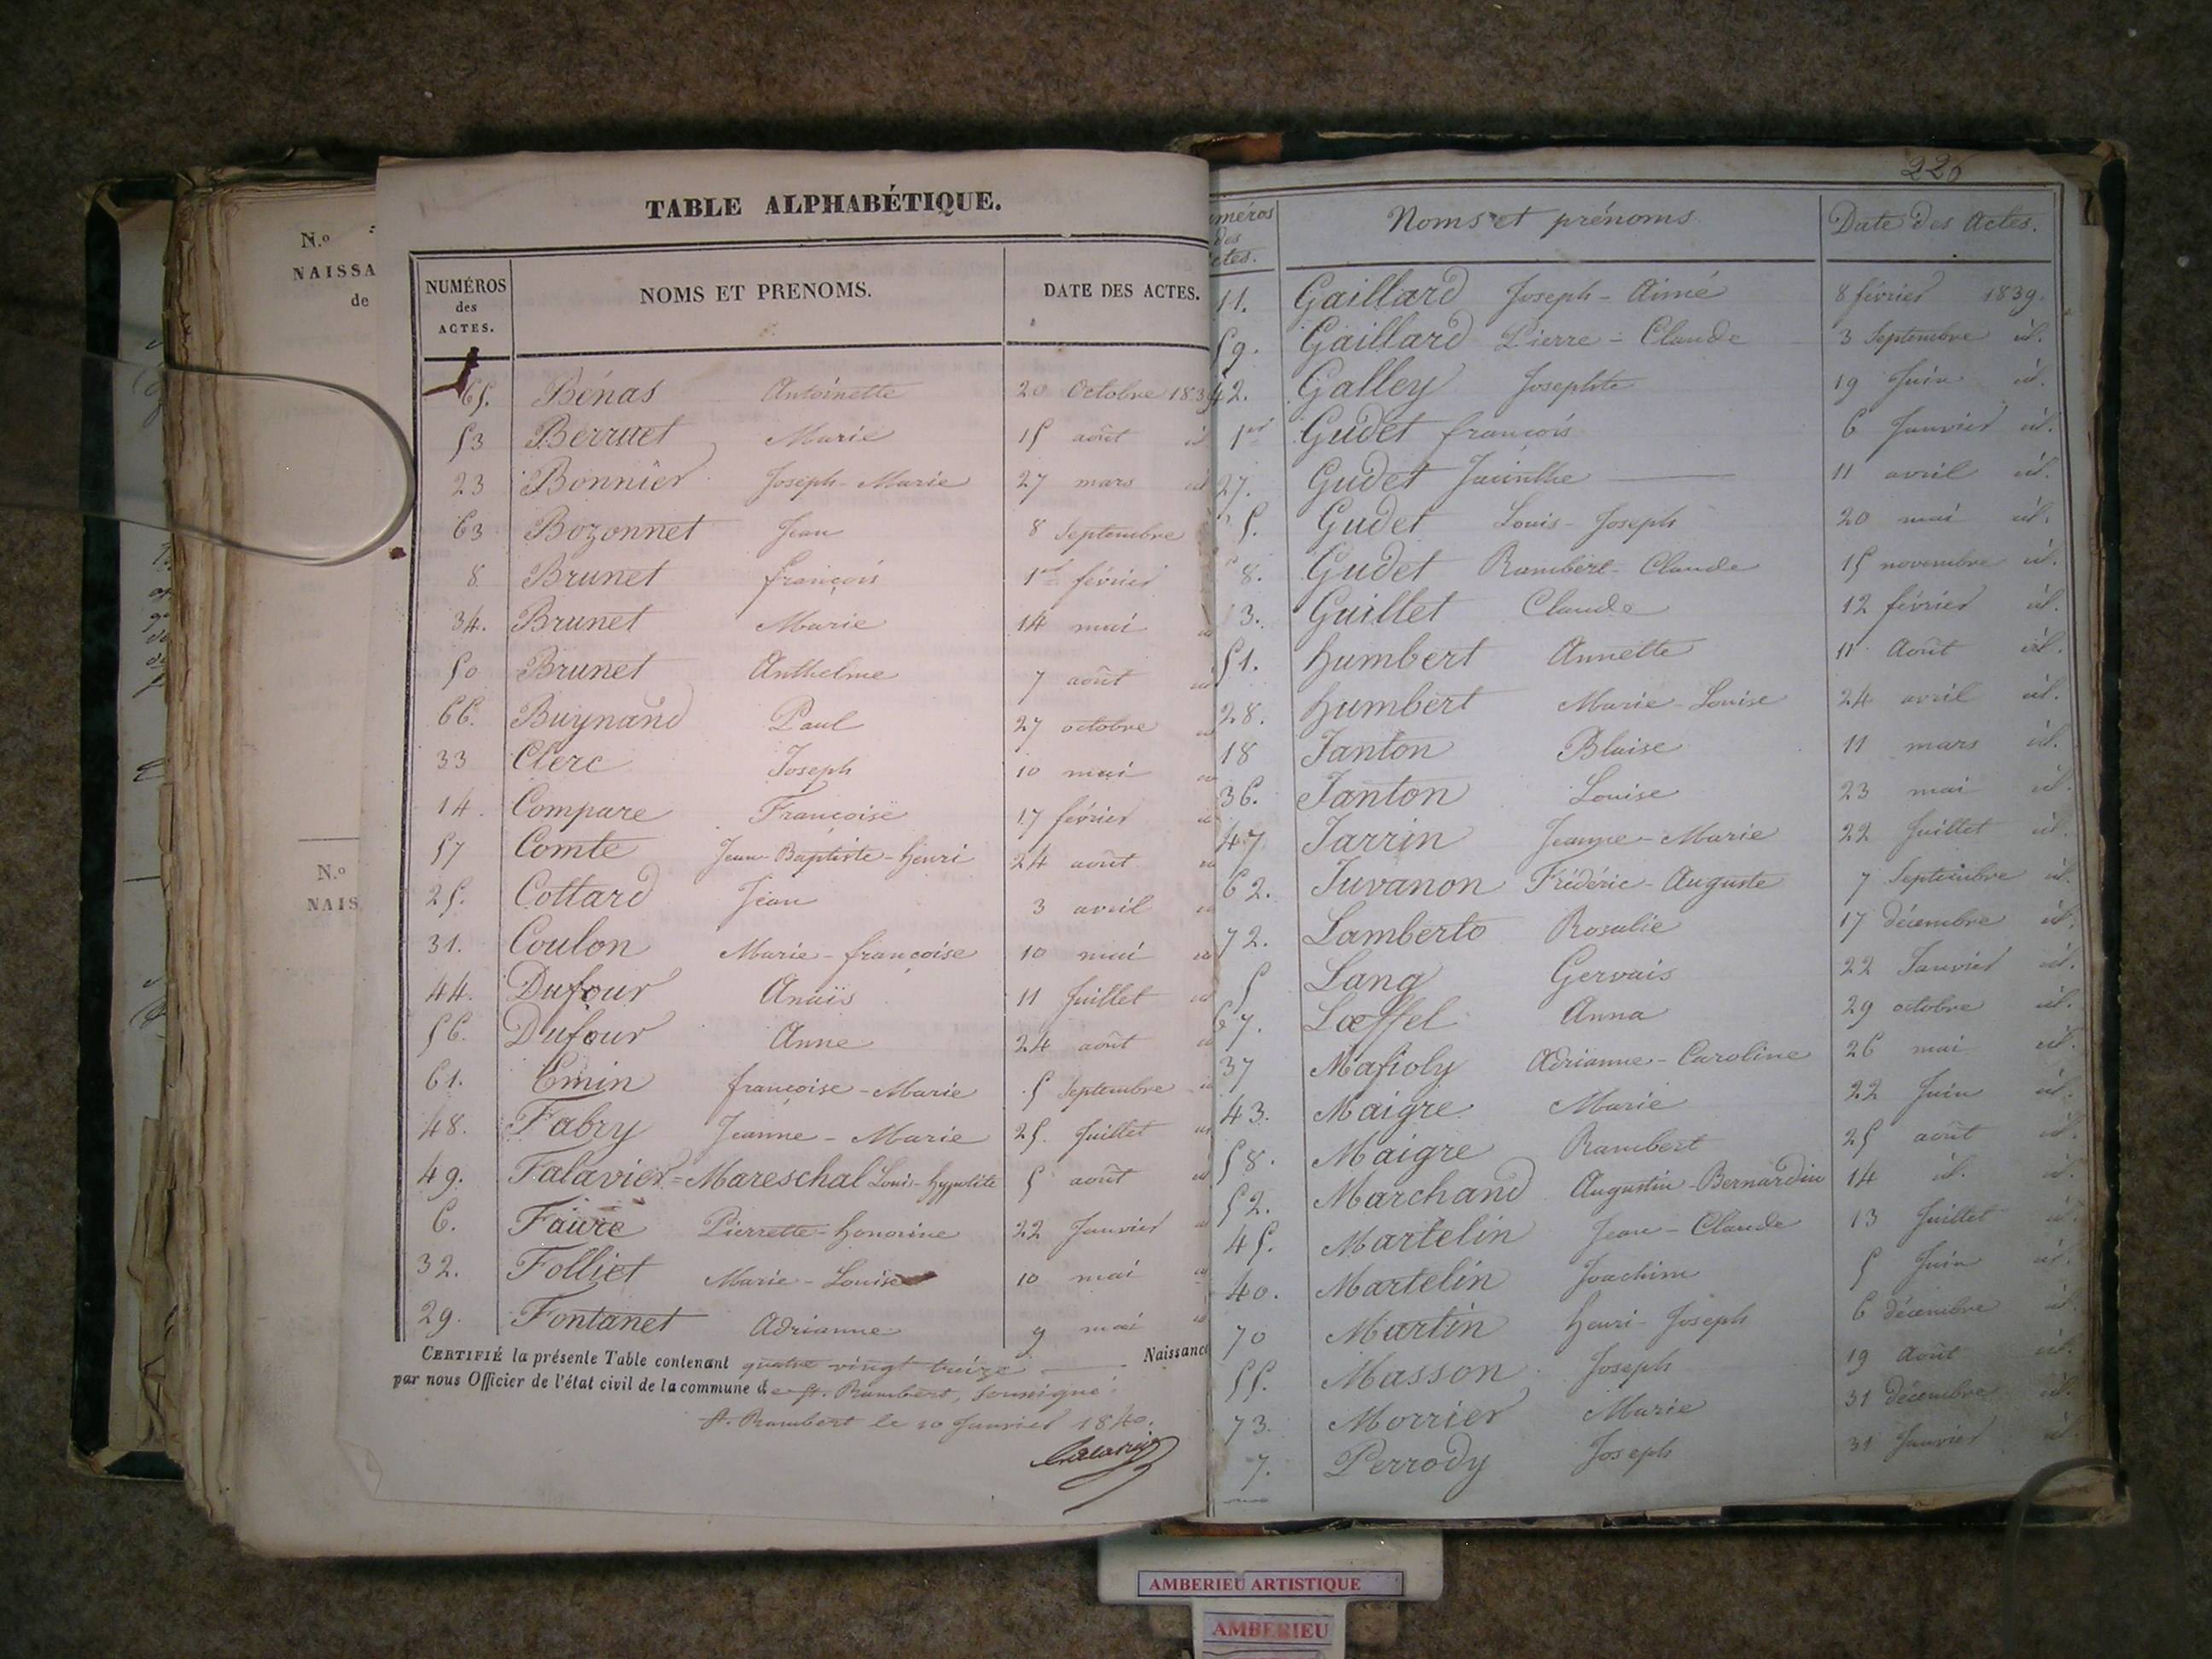 N.o
NAISSA
de
N.o
NAIS
TABLE ALPHABÉTIQUE.
NUMÉROS des ACTES. NOMS ET PRENOMS. DATE DES ACTES.
65. Bénas Antoinette 20 Octobre 1839
53 Berruet Marie 15 août id
23 Bonnier Joseph-Marie 27 mars id
63 Bozonnet Jean 8 Septembre
8 Brunet françois 1er février
34. Brunet Marie 14 mai
50 Brunet Anthelme 7 août
66. Buynand Paul 27 octobre
33 Clerc Joseph 10 mai
14. Compare Françoise 17 février
57 Comte Jean-Baptiste-henri 24 août
25. Cottard Jean 3 avril
31. Coulon Marie-françoise 10 mai
44. Dufour Anaïs 11 Juillet
56. Dufour Anne 24 août
61. Emin françoise-Marie 5 Septembre
48. Fabry Jeanne-Marie 25. Juillet
49. Falavier=Mareschal Louis-hypolite 5 août
6. Faivre Pierrette-honorine 22 Janvier
32. Folliet Marie-Louise 10 mai
29. Fontanet Adrianne 9 mai
CERTIFIÉ la présente Table contenant quatre vingt treize Naissance
par nous Officier de l'état civil de la commune de St. Rambert, soussigné.
St. Rambert le 10 Janvier 1840.
226
uméros des ctes. Noms et prénoms Date des Actes.
11. Gaillard Joseph-Aimé 8 février 1839.
59. Gaillard Pierre-Claude 3 Septembre id.
42. Galley Josephte 19 Juin id.
1er Gudet françois 6 Janvier id.
27. Gudet Jacinthe 11 avril id.
5. Gudet Louis-Joseph 20 mai id.
8. Gudet Rambert-Claude 15 novembre id.
13. Guillet Claude 12 février id.
51. humbert Annette 11 Août id.
28. humbert Marie-Louise 24 avril id.
18 Janton Blaise 11 mars id.
36. Janton Louise 23 mai id.
47 Jarrin Jeanne-Marie 22 Juillet id.
62. Juvanon Frédéric-Auguste 7 Septembre id.
72. Lamberto Rosalie 17 décembre id.
5 Lang Gervais 22 Janvier id.
67. Lœffel Anna 29 octobre id.
37 Mafioly Adrianne-Caroline 26 mai id.
43. Maigre Marie 22 Juin id.
58. Maigre Rambert 25 août id.
52. Marchand Augustin-Bernardin 14 id. id.
45. Martelin Jean-Claude 13 Juillet id.
40. Martelin Joachim 5 Juin id.
70 Martin henri-Joseph 6 décembre id.
55. Masson Joseph 19 Août id.
73. Morrier Marie 31 décembre id.
7. Perrody Joseph 31 Janvier id.
AMBERIEU ARTISTIQUE
AMBERIEU